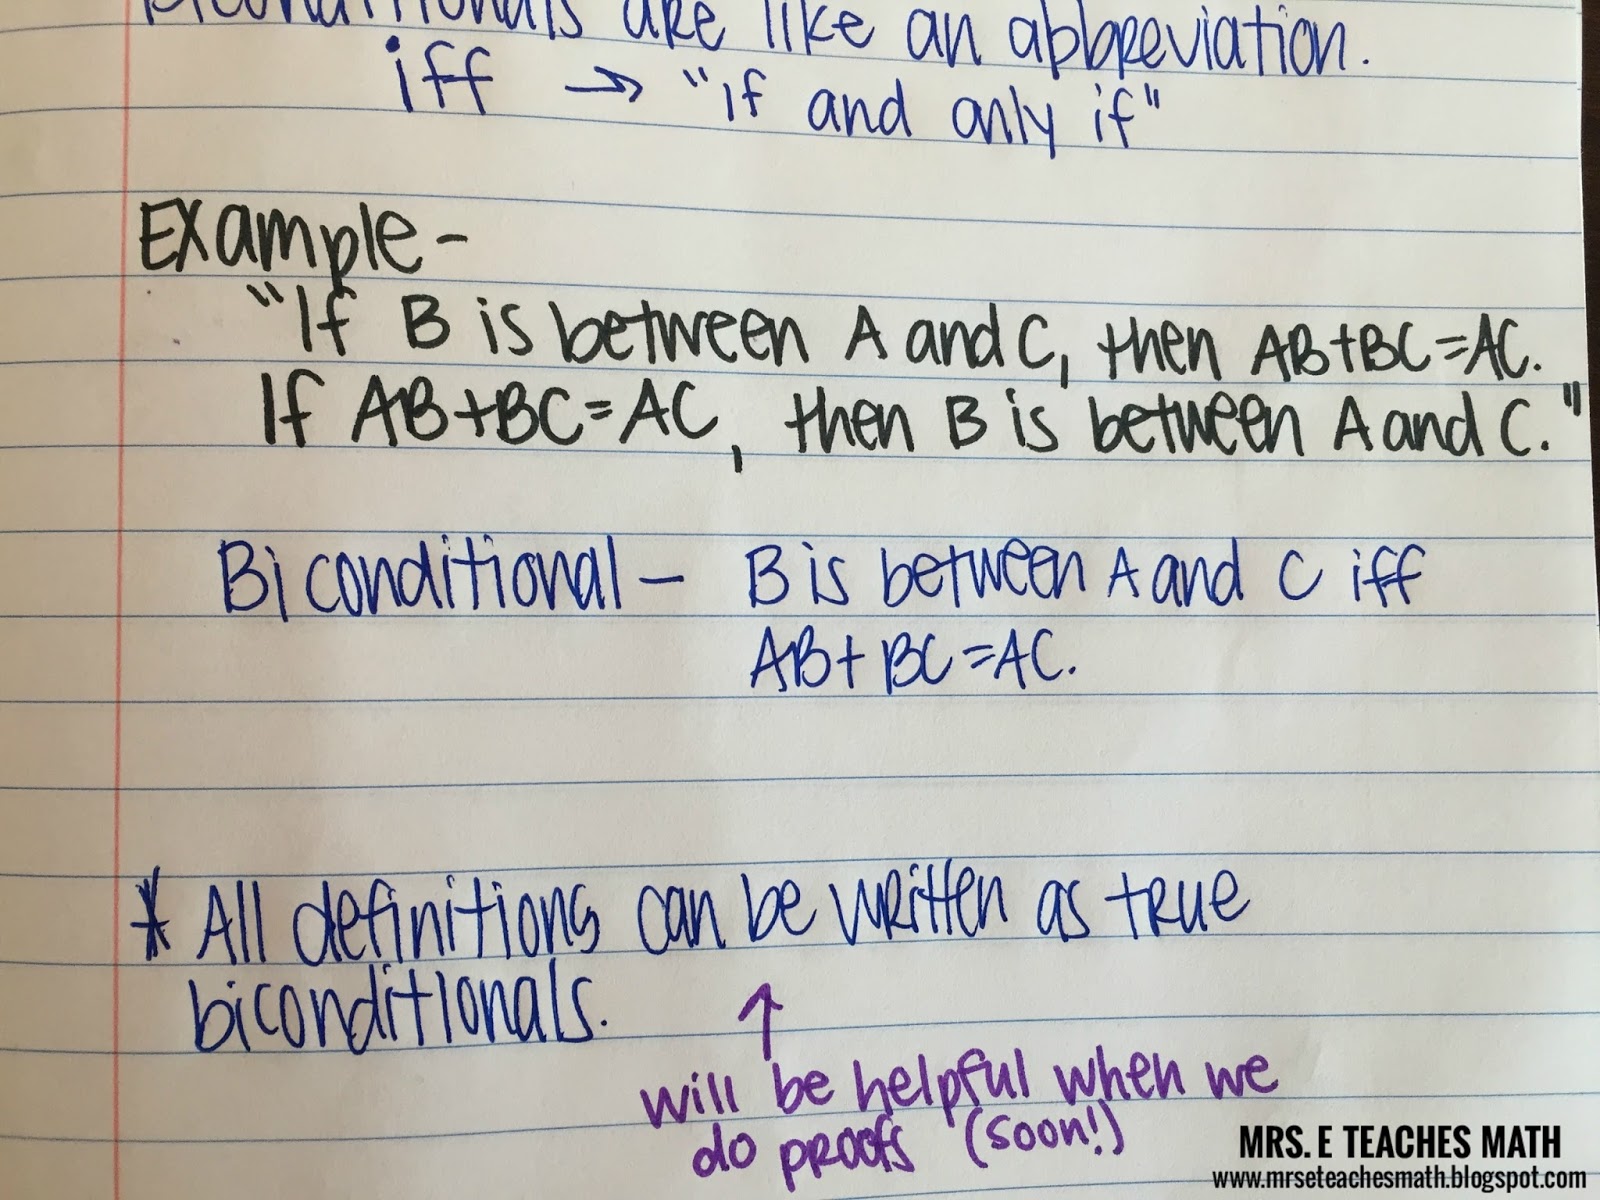 Biconditionals are like an abbreviation.
iff → "if and only if"
Example-
"If B is between A and C, then AB+BC=AC.
If AB+BC=AC, then B is between A and C."
Biconditional - B is between A and C iff
AB+BC=AC.
* All definitions can be written as true
biconditionals.
↑
will be helpful when we
do proofs (soon!)
MRS. E TEACHES MATH
www.mrseteachesmath.blogspot.com